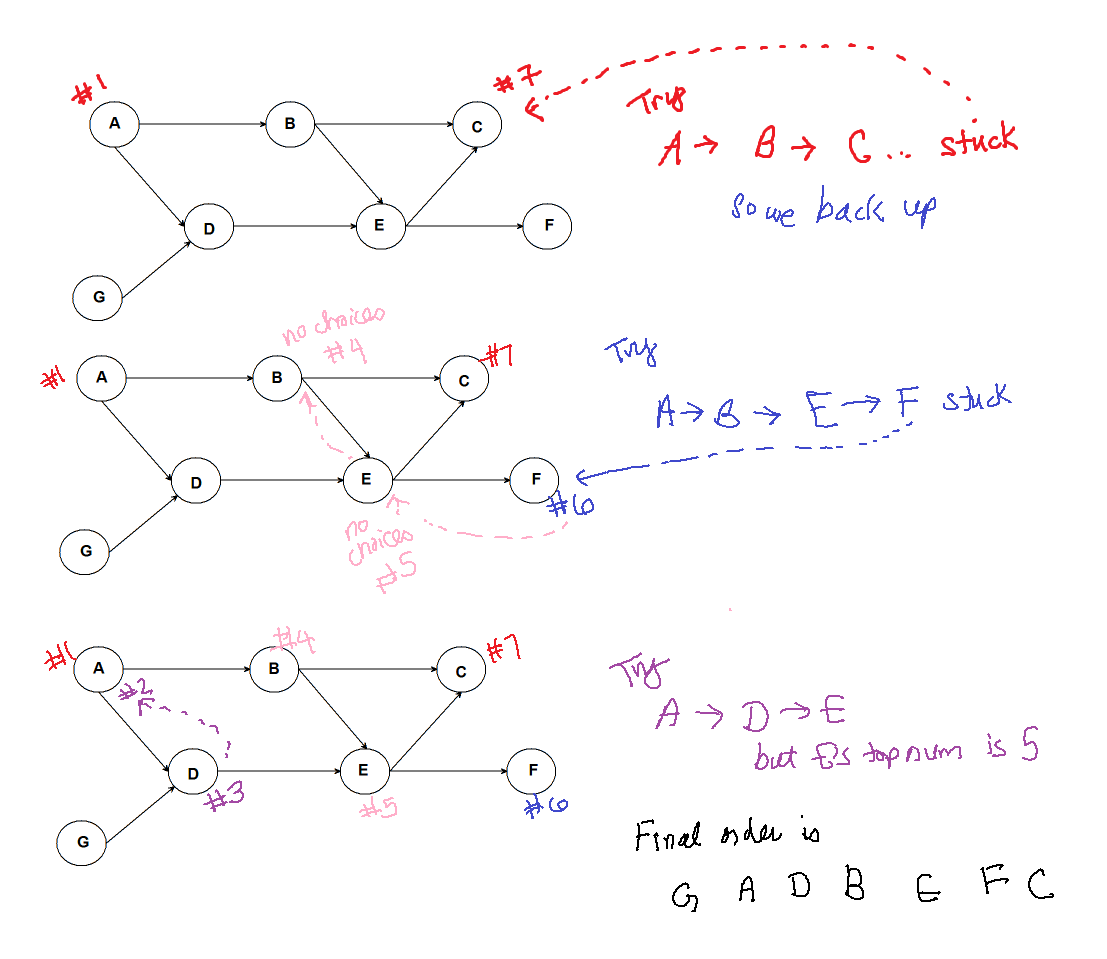 #1
#7
A
B
C
D
E
F
G
Try
A → B → C... stuck
so we back up
no choices
#4
#1
#7
A
B
C
D
E
F
G
#6
no
choices
#5
Try
A → B → E → F stuck
#1
#4
#7
A
B
C
#2
D
E
F
#3
#5
#6
G
Try
A → D → E
but E's topnum is 5
Final order is
G A D B E F C